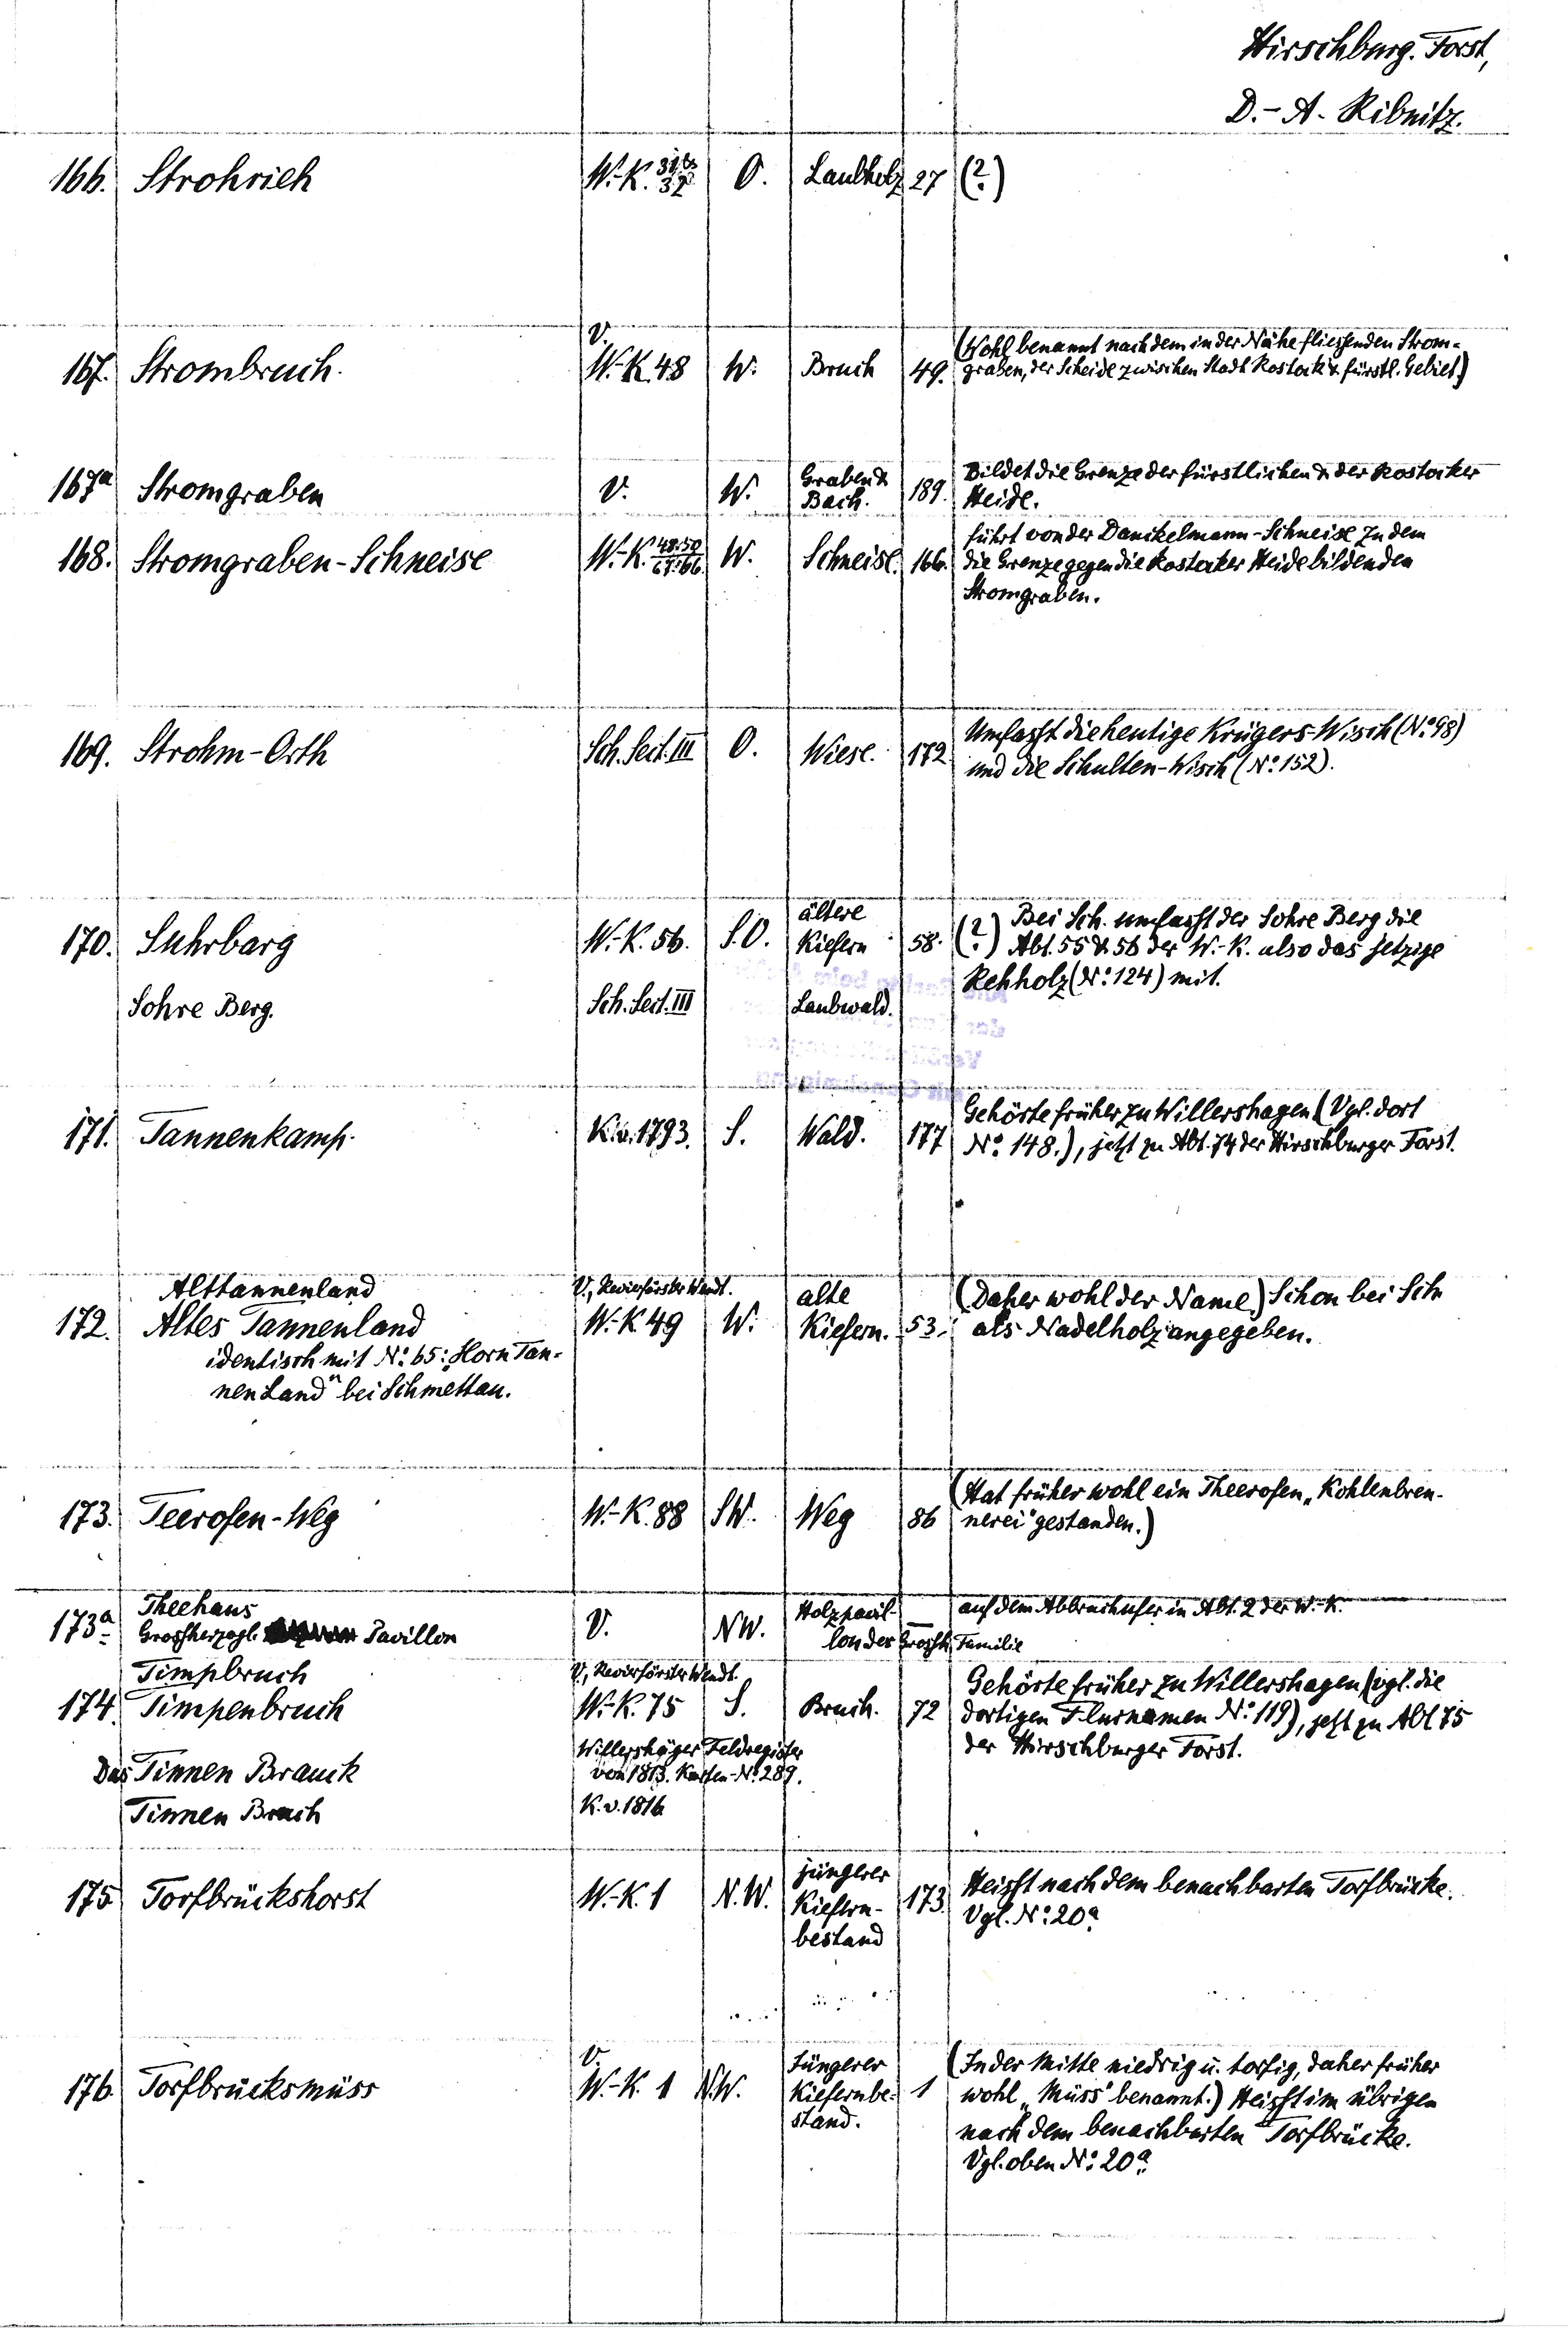 Hirschburg. Forst,
D.-A. Ribnitz.
166. Strohrieh W.-K. 31 32 O. Laubholz 27 (?)
167. Strombruch. V. W.-K. 48 W. Bruch 49. (Wohl benannt nach dem in der Nähe fliessenden Strom-
graben, der Scheide zwischen Stadt Rostock & fürstl. Gebiet.)
167a Stromgraben V. W. Graben & Bach. 189. Bildet die Grenze der fürstlichen & der Rostocker
Heide.
168. Stromgraben-Schneise W.-K. 48:50 67:66 W. Schneise. 166. führt von der Danckelmann-Schneise zu dem
die Grenze gegen die Rostocker Heide bildenden
Stromgraben.
169. Strohm-Orth Sch. Sect. III O. Wiese. 172. Umfasst die heutige Krügers-Wisch (No. 98)
und die Schulten-Wisch (No. 152).
170. Suhrbarg W.-K. 56. S.O. ältere Kiefern 58. (?) Bei Sch. umfasst der Sohre Berg die
Abt. 55 & 56 der W.-K. also das jetzige
Rehholz (No. 124) mit.
Sohre Berg. Sch. Sect. III Laubwald.
171. Tannenkamp. K.v. 1793. S. Wald. 177 Gehörte früher zu Willershagen (Vgl. dort
No. 148.), jetzt zu Abt. 74 der Hirschburger Forst.
Alttannenland V., Revierförster Wendt.
172. Altes Tannenland W.-K. 49 W. alte Kiefern. 53. (Daher wohl der Name.) Schon bei Schm
als Nadelholz angegeben.
identisch mit No. 65: „Horn Tan-
nen Land" bei Schmettau.
173. Teerofen-Weg W.-K. 88 SW. Weg 86 (Hat früher wohl ein Theerofen „Kohlenbren-
nerei" gestanden.)
173a. Theehaus V. NW. Holzpavil- — auf dem Abbruchufer in Abt. 2 der W.-K.
Grossherzogl. Pavillon lon der Grossh. Familie
Timpbruch V., Revierförster Wendt.
174. Timpenbruch W.-K. 75 S. Bruch. 72 Gehörte früher zu Willershagen (vgl. die
dortigen Flurnamen No. 119), jetzt zu Abt 75
der Hirschburger Forst.
Das Timmen Brauck Willershäger Feldregister
von 1813. Karten-No. 289.
Timmen Bruch K.v. 1816
175 Torfbrückshorst W.-K. 1 N.W. jüngerer
Kiefern-
bestand 173. Heisst nach dem benachbarten Torfbrücke.
Vgl. No. 20a.
176 Torfbrücksmüss V. W.-K. 1 N.W. Jüngerer
Kiefernbe-
stand. 1 (In der Mitte niedrig u. torfig, daher früher
wohl „Müss" benannt.) Heisst im übrigen
nach dem benachbarten Torfbrücke.
Vgl. oben No. 20a.